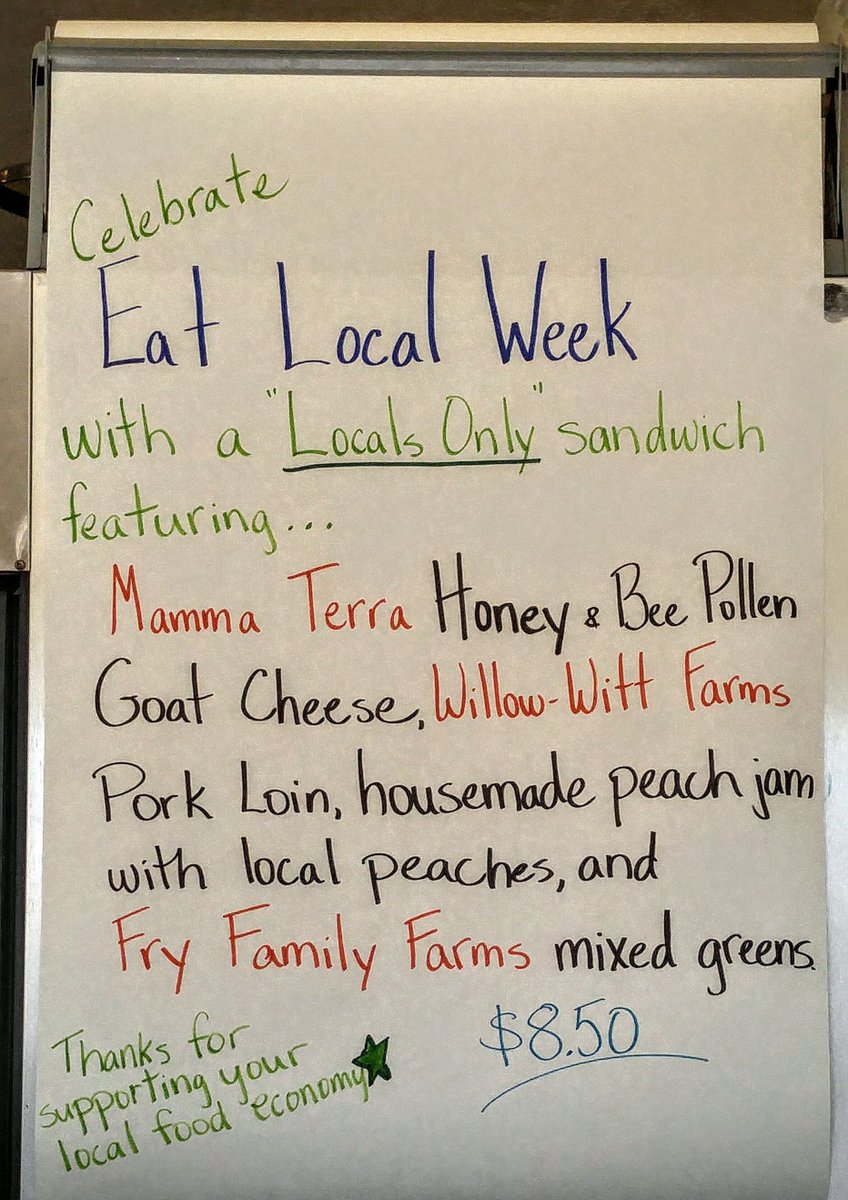 Celebrate
Eat Local Week
with a "Locals Only" sandwich
featuring...
Mamma Terra Honey & Bee Pollen
Goat Cheese, Willow-Witt Farms
Pork Loin, housemade peach jam
with local peaches, and
Fry Family Farms mixed greens.
$8.50
Thanks for
supporting your
local food economy